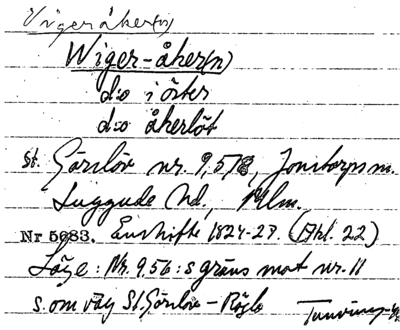 Vigeråker(n)
Wiger-åker(n)
d:o i örter
d:o åkerlöt
St. Görslöv nr. 9, 5/8, Jonstorps sn.
Luggude hd., Mlm.
Nr 5683. Enskifte 1824-27. (Akt. 22)
Läge: Nr. 9.56: s gräns mot nr. 11
s. om väg St Görslöv -